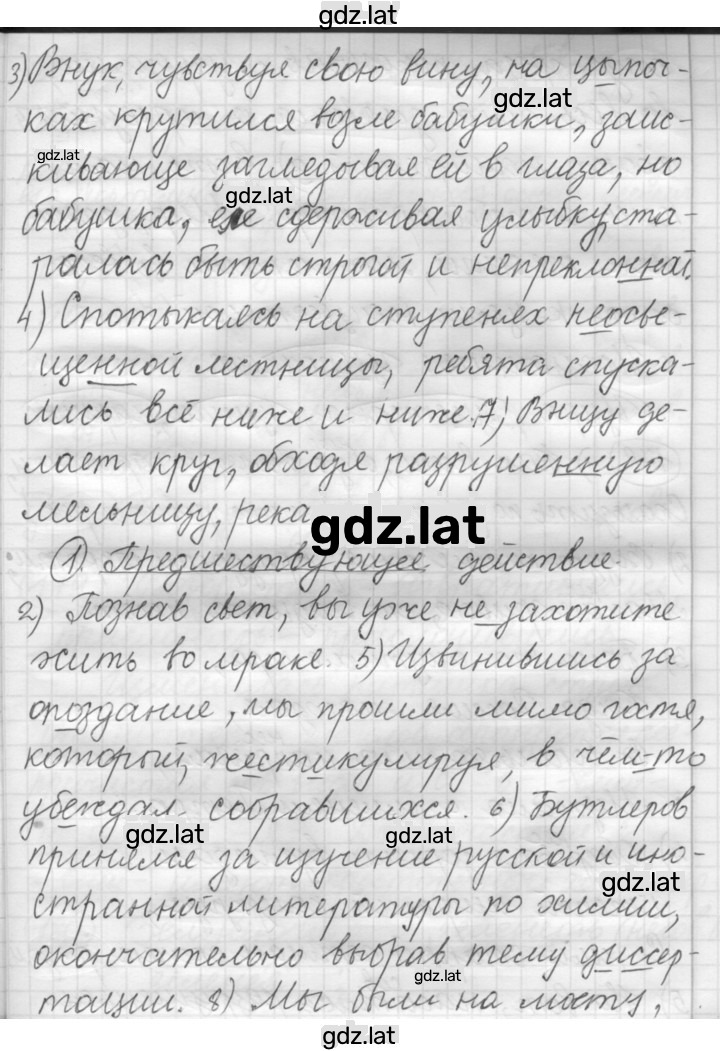 gdz.lat
3) Внук, чувствуя свою вину, на цыпоч-
gdz.lat
ках крутился возле бабушки, заис-
gdz.lat
кивающе загледывая ей в глаза, но
gdz.lat
бабушка, еле сдерживая улыбку, ста-
ралась быть строгой и непреклонной.
4) Спотыкаясь на ступенях неосве-
щенной лестницы, ребята спуска-
лись всё ниже и ниже. 7) Внизу де-
лает круг, обходя разрушенную
мельницу, река
gdz.lat
1. Предшествующее действие.
2) Познав свет, вы уже не захотите
жить во мраке. 5) Извинившись за
опоздание, мы прошли мимо гостя,
который, жестикулируя, в чём-то
убеждал собравшихся. 6) Бутлеров
gdz.lat
gdz.lat
принялся за изучение русской и ино-
gdz.lat
странной литературы по химии,
окончательно выбрав тему диссер-
gdz.lat
тации. 8) Мы были на мосту,
gdz.lat